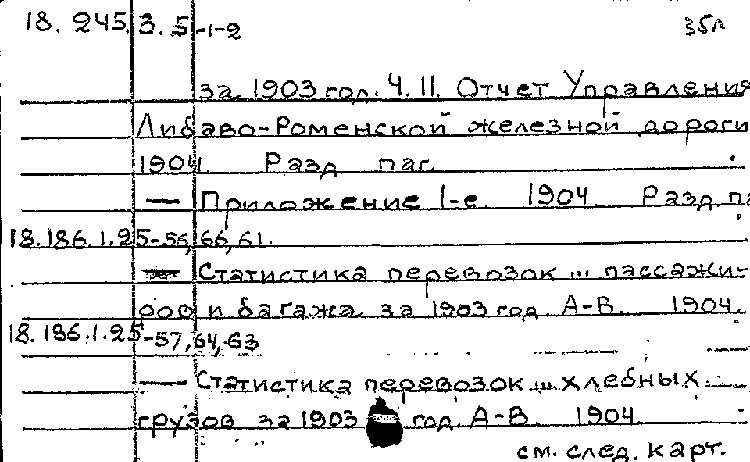 18.245.3.5-1-2 35л
за 1903 год. Ч. II. Отчет Управления
Либаво-Роменской железной дороги
1904. Разд паг.
— Приложение I-е. 1904. Разд па
18.186.1.25-56,66,61.
— Статистика перевозок ... пассажи-
ров и багажа за 1903 год. А-В. 1904.
18.186.1.25-57,64,63
— Статистика перевозок ... хлебных
грузов за 1903 год. А-В. 1904.
см. след. карт.